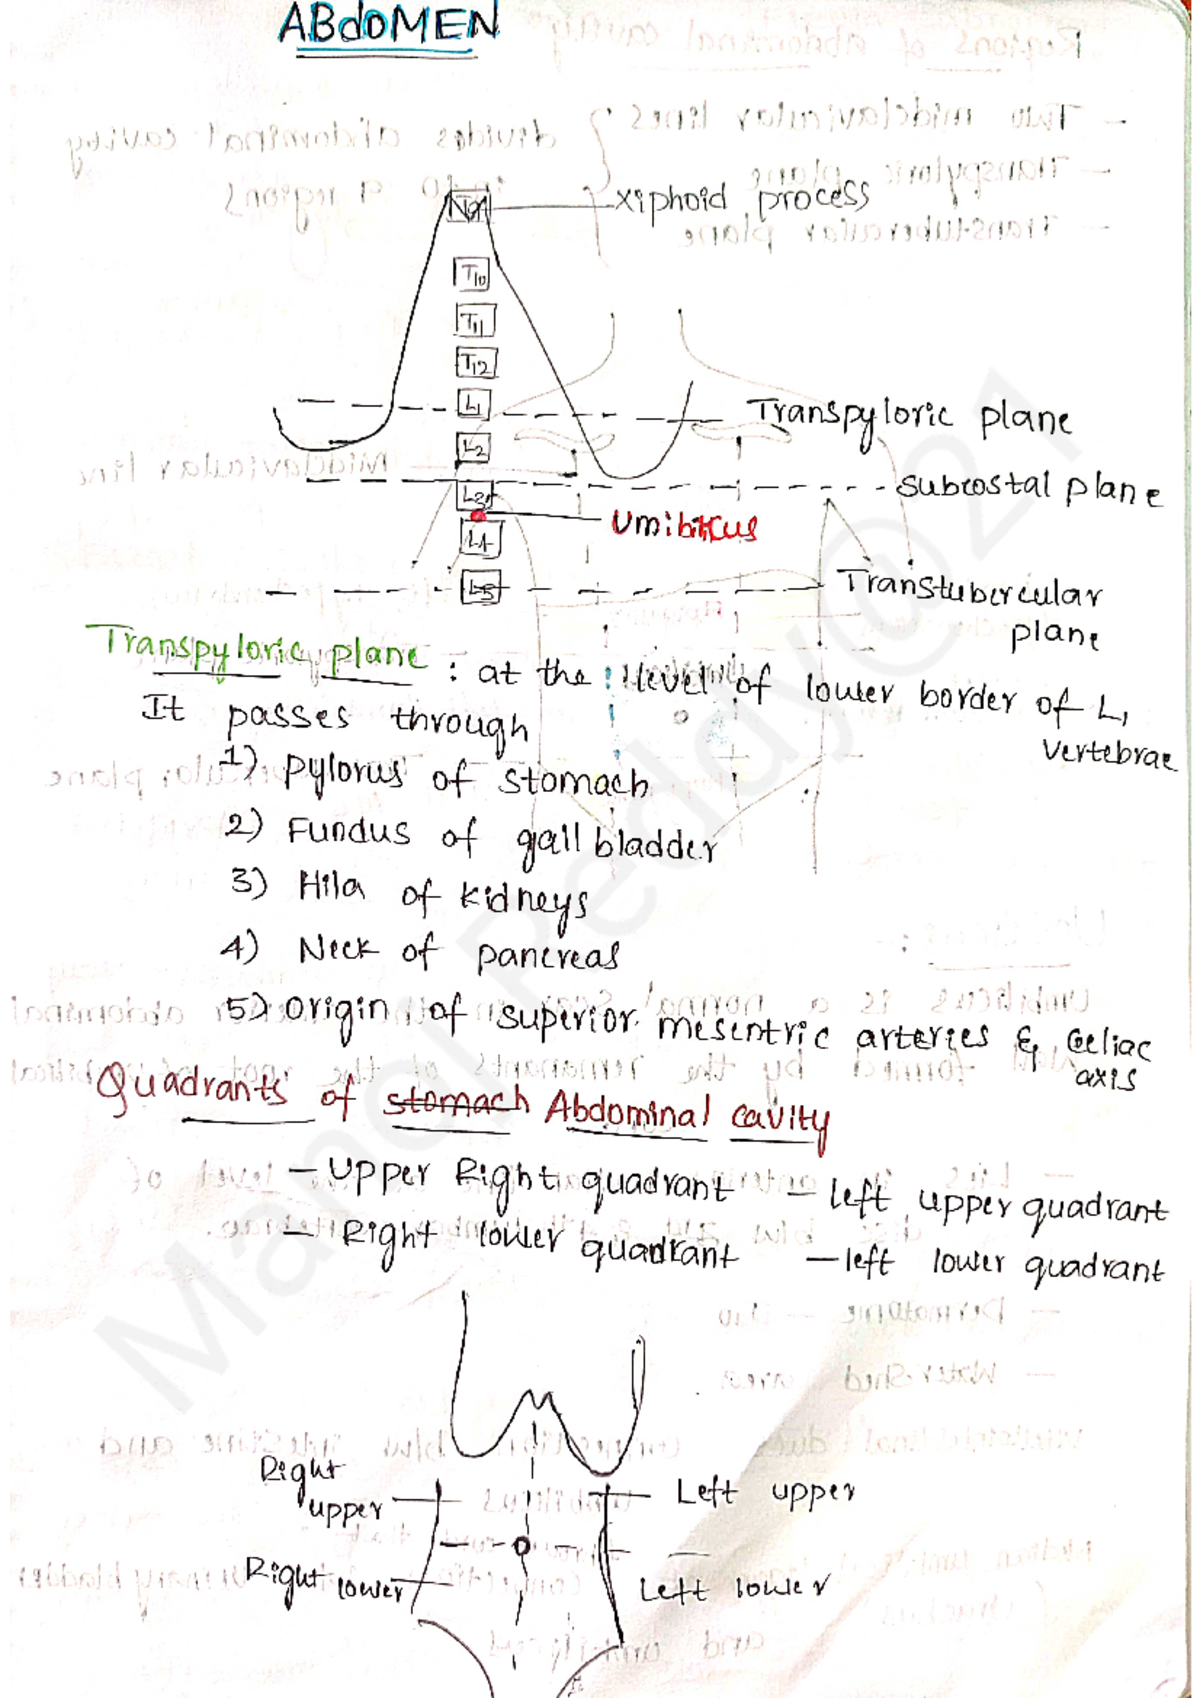 ABdOMEN
xiphoid process
T10
T11
T12
L1
Transpyloric plane
L2
subcostal plane
L3
Umibitcus
L4
L5
Transtubercular
plane
Transpyloric plane : at the level of lower border of L1
vertebrae
It passes through
1) pylorus of stomach
2) Fundus of gall bladder
3) Hila of kidneys
4) Neck of pancreas
5) origin of superior mesentric arteries & Celiac
axis
Quadrants of stomach Abdominal cavity
- Upper Right quadrant - left upper quadrant
- Right lower quadrant - left lower quadrant
Right
upper
Left upper
Right lower
Left lower
Manoj Reddy@21